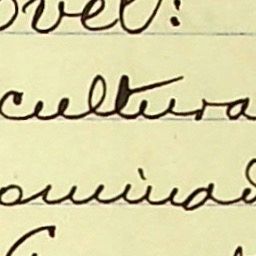 ovel:
cultura
ominad